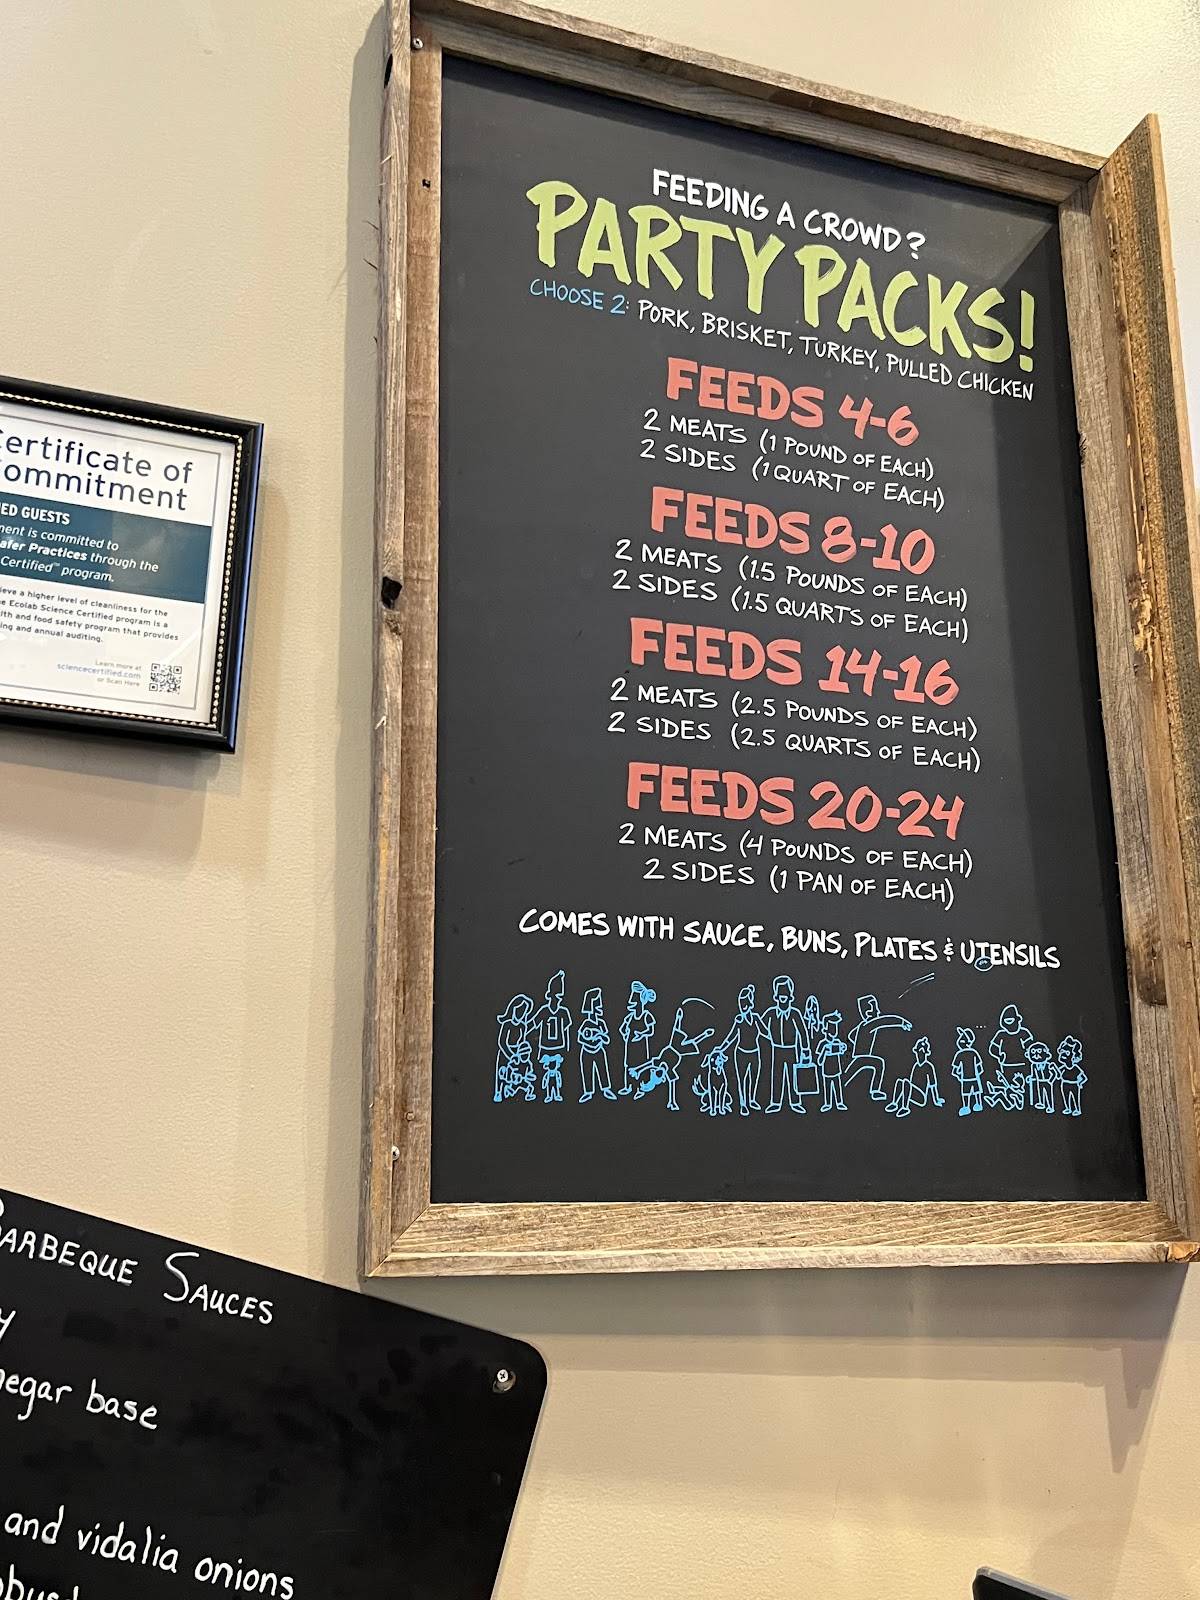 FEEDING A CROWD?
PARTY PACKS!
CHOOSE 2: PORK, BRISKET, TURKEY, PULLED CHICKEN
FEEDS 4-6
2 MEATS (1 POUND OF EACH)
2 SIDES (1 QUART OF EACH)
FEEDS 8-10
2 MEATS (1.5 POUNDS OF EACH)
2 SIDES (1.5 QUARTS OF EACH)
FEEDS 14-16
2 MEATS (2.5 POUNDS OF EACH)
2 SIDES (2.5 QUARTS OF EACH)
FEEDS 20-24
2 MEATS (4 POUNDS OF EACH)
2 SIDES (1 PAN OF EACH)
COMES WITH SAUCE, BUNS, PLATES & UTENSILS
ertificate of
ommitment
ED GUESTS
ment is committed to
afer Practices through the
Certified™ program.
ieve a higher level of cleanliness for the
e Ecolab Science Certified program is a
lth and food safety program that provides
ing and annual auditing.
Learn more at
sciencecertified.com
or Scan Here
BARBEQUE SAUCES
y
negar base
and vidalia onions